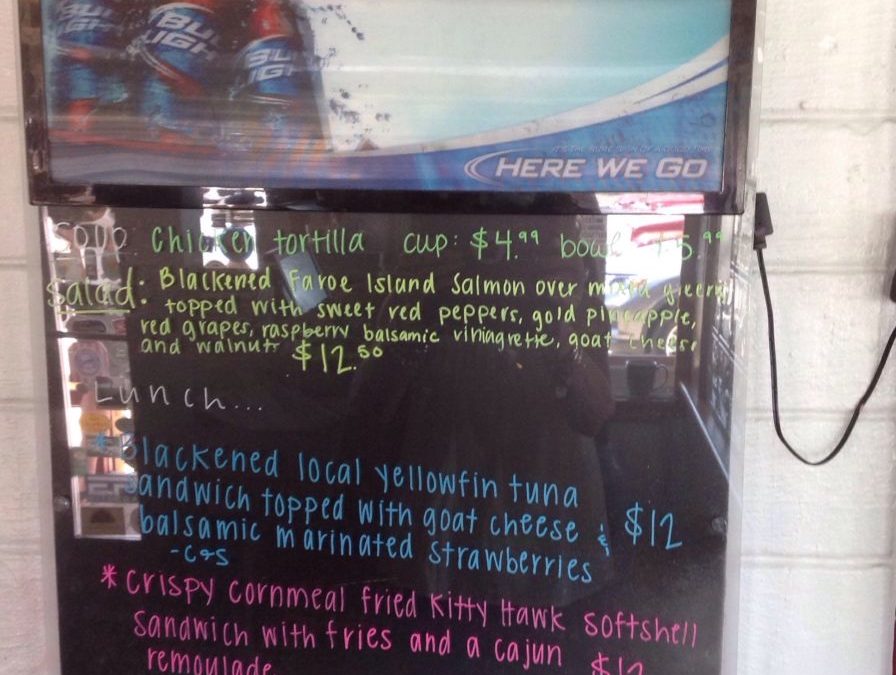 BUD LIGHT
BUD LIGHT
HERE WE GO
Soup Chicken tortilla cup: $4.99 bowl $5.99
Salad: Blackened Faroe Island Salmon over mixed greens
topped with sweet red peppers, gold pineapple,
red grapes, raspberry balsamic viniagrette, goat cheese
and walnuts $12.50
Lunch...
* Blackened local yellowfin tuna
sandwich topped with goat cheese & $12
balsamic marinated strawberries
-C&S
* Crispy cornmeal fried Kitty Hawk softshell
sandwich with fries and a cajun $12
remoulade